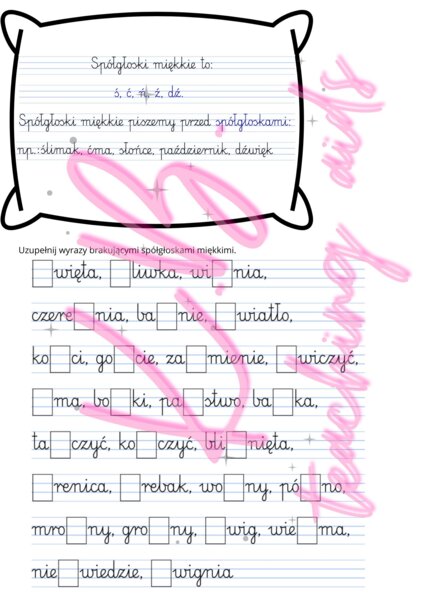 Spółgłoski miękkie to:
ś, ć, ń, ź, dź.
Spółgłoski miękkie piszemy przed spółgłoskami:
np.:ślimak, ćma, słońce, październik, dźwięk
Uzupełnij wyrazy brakującymi spółgłoskami miękkimi.
□więta, □liwka, wi□nia,
czere□nia, ba□nie, □wiatło,
ko□ci, go□cie, za□mienie, □wiczyć,
□ma, bo□ki, pa□stwo, ba□ka,
ta□czyć, ko□czyć, bli□nięta,
□renica, □rebak, wo□ny, pó□no,
mro□ny, gro□ny, □wig, wie□ma,
nie□wiedzie, □wignia
D.i.b
teaching aids